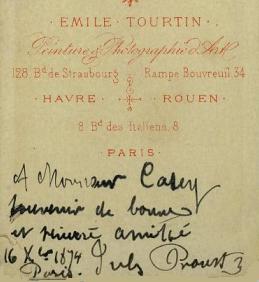 · EMILE TOURTIN ·
Peinture & Photographie d'Art
128, Bd de Strasbourg Rampe Bouvreuil, 34
· HAVRE · · ROUEN ·
8, Bd des Italiens, 8
· PARIS ·
A Monsieur Casey
souvenir de bonne
et sincère amitié
16 Xbre 1874
Paris. Jules Proust